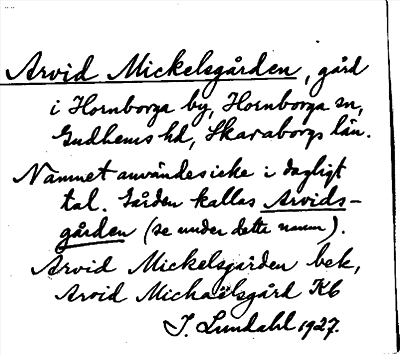 Arvid Mickelsgården, gård
i Hornborga by, Hornborga sn,
Gudhems hd, Skaraborgs län.
Namnet användes icke i dagligt
tal. Gården kallas Arvids-
gården (se under detta namn).
Arvid Mickelsgården bek,
Arvid Michaëlsgård Kb
J. Lundahl 1927.